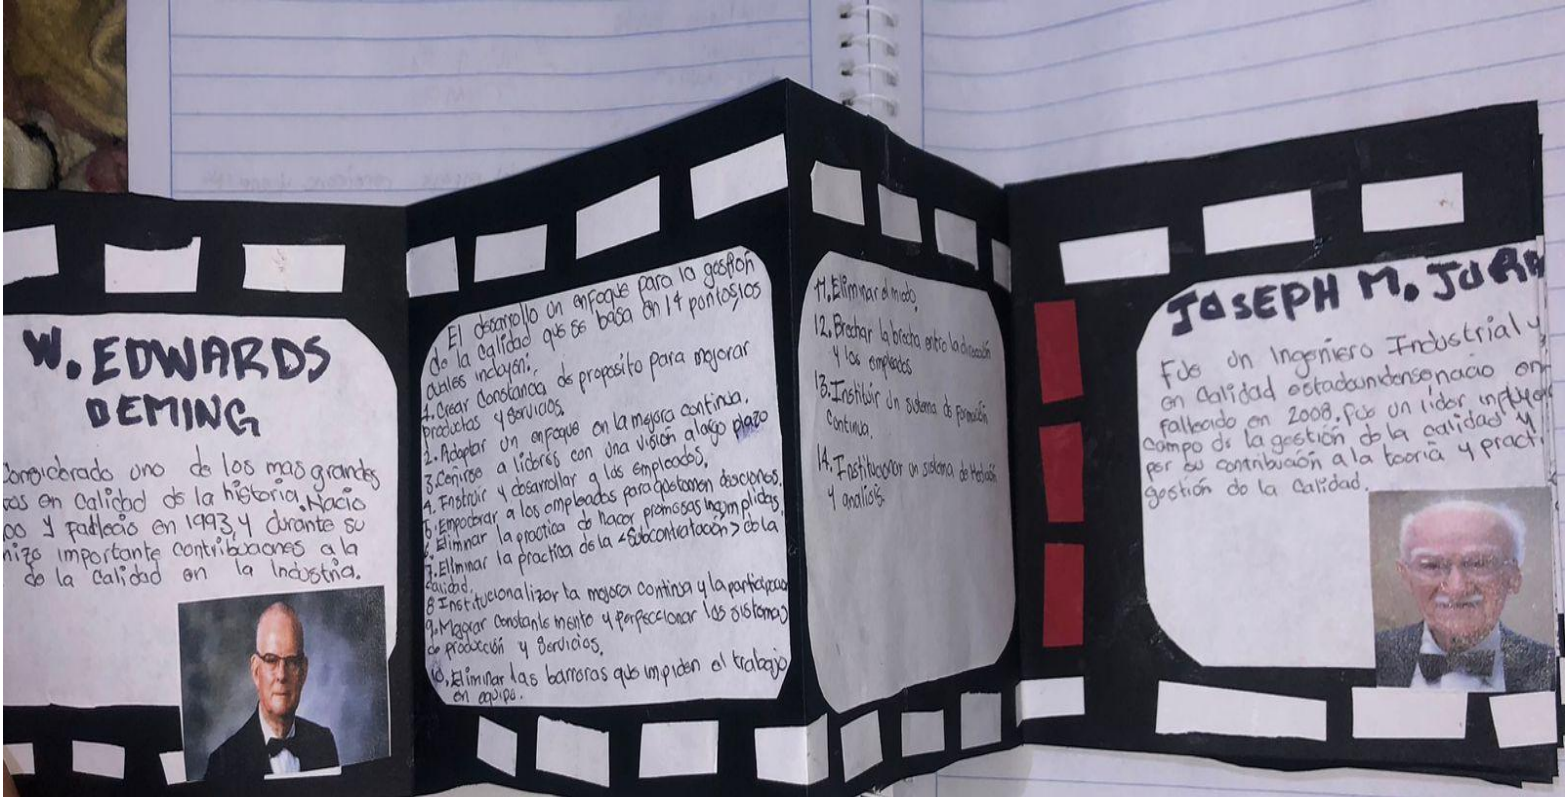 W. EDWARDS
DEMING
Considerado uno de los mas grandes
en calidad de la historia. Nacio
00 y falleció en 1993, y durante su
hizo importante contribuciones a la
de la calidad en la Industria.
El desarrollo un enfoque para la gestión
de la calidad que es basa en 14 puntos, los
cuales incluyen:
1. Crear Constancia de proposito para mejorar
productos y servicios.
2. Adoptar un enfoque en la mejora continua.
3. Ceñirse a lideres con una visión a lago plazo
4. Instruir y desarrollar a los empleados.
5. Empoderar a los empleados para que tomen desciones.
6. Eliminar la practica de hacer promesas incumplidas.
7. Eliminar la practica de la <Subcontratación> de la
calidad.
8 Institucionalizar la mejora continua y la
9. Mejorar constante mente y perfeccionar los sistemas
de producción y servicios.
10. Eliminar las barreras que impiden el trabajo
en equipo.
11. Eliminar el miedo.
12. Brechar la brecha entre la dirección
y los empleados
13. Instituir un sistema de formación
Continua.
14. Institucionar un sistema de Medición
y analisis.
JOSEPH M. JURA
Fue un Ingeniero Industrial y
en calidad estadounidense nacio en
falleado en 2008. fue un lider
Campo de la gestión de la calidad y
por su contribución a la teoria y practi
gestión de la calidad.